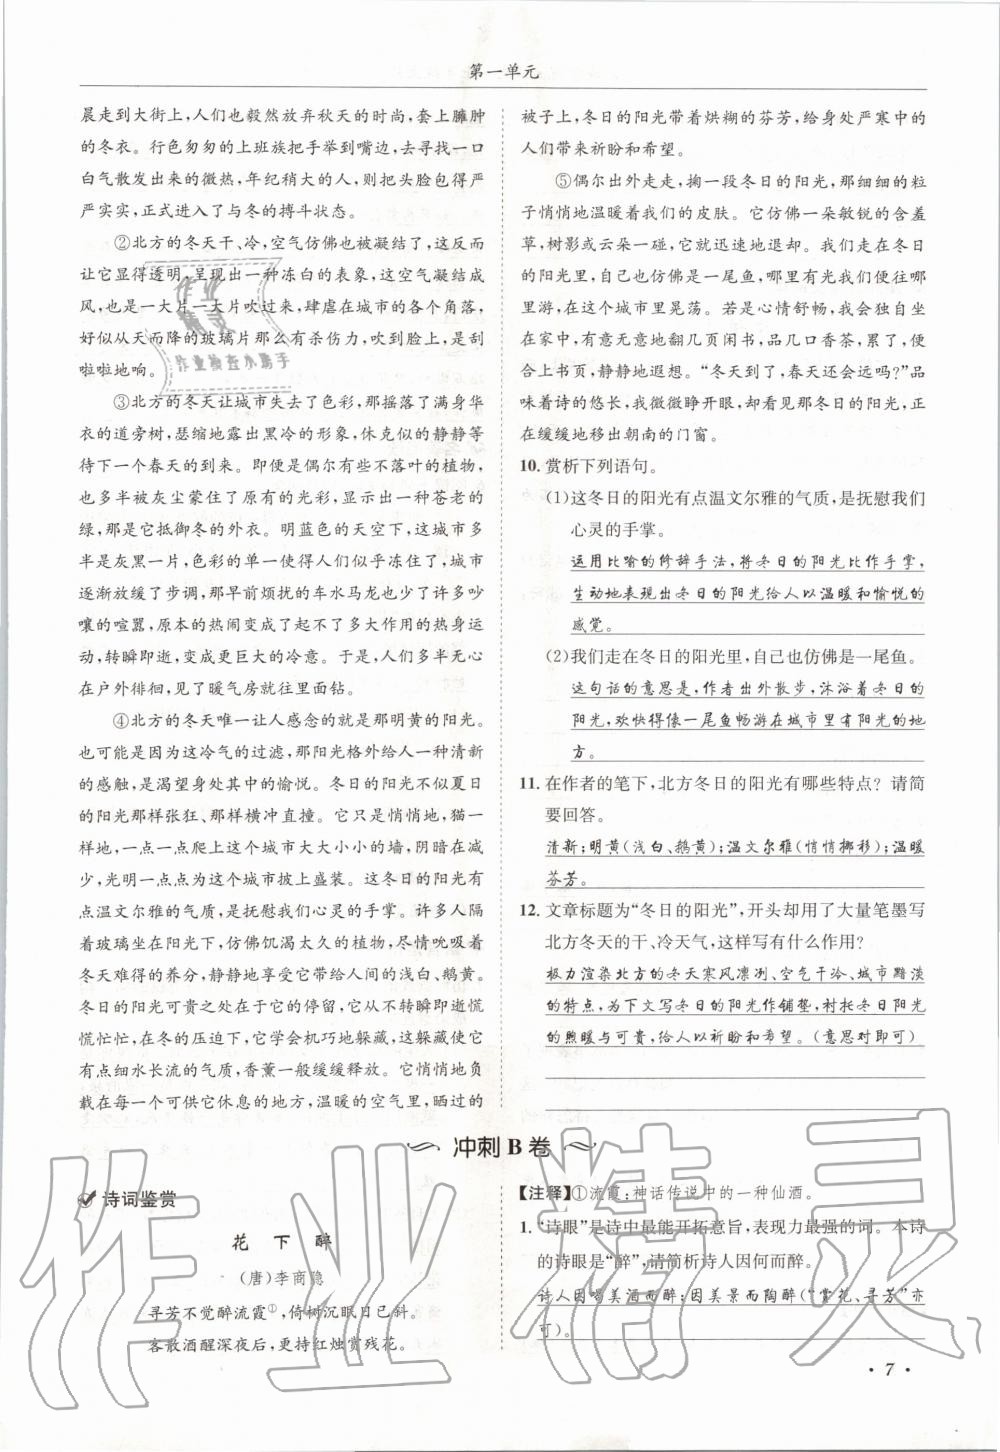 第一单元
晨走到大街上,人们也毅然放弃秋天的时尚,套上臃肿
的冬衣。行色匆匆的上班族把手举到嘴边,去寻找一口
白气散发出来的微热,年纪稍大的人,则把头脸包得严
严实实,正式进入了与冬的搏斗状态。
②北方的冬天干、冷,空气仿佛也被凝结了,这反而
让它显得透明,呈现出一种冻白的表象,这空气凝结成
风,也是一大片一大片吹过来,肆虐在城市的各个角落,
好似从天而降的玻璃片那么有杀伤力,吹到脸上,是刮
啦啦地响。
③北方的冬天让城市失去了色彩,那摇落了满身华
衣的道旁树,瑟缩地露出黑冷的形象,休克似的静静等
待下一个春天的到来。即便是偶尔有些不落叶的植物,
也多半被灰尘蒙住了原有的光彩,显示出一种苍老的
绿,那是它抵御冬的外衣。明蓝色的天空下,这城市多
半是灰黑一片,色彩的单一使得人们似乎冻住了,城市
逐渐放缓了步调,那早前烦扰的车水马龙也少了许多吵
嚷的喧嚣,原本的热闹变成了起不了多大作用的热身运
动,转瞬即逝,变成更巨大的冷意。于是,人们多半无心
在户外徘徊,见了暖气房就往里面钻。
④北方的冬天唯一让人感念的就是那明黄的阳光。
也可能是因为这冷气的过滤,那阳光格外给人一种清新
的感触,是渴望身处其中的愉悦。冬日的阳光不似夏日
的阳光那样张狂、那样横冲直撞。它只是悄悄地,猫一
样地,一点一点爬上这个城市大大小小的墙,阴暗在减
少,光明一点点为这个城市披上盛装。这冬日的阳光有
点温文尔雅的气质,是抚慰我们心灵的手掌。许多人隔
着玻璃坐在阳光下,仿佛饥渴太久的植物,尽情吮吸着
冬天难得的养分,静静地享受它带给人间的浅白、鹅黄。
冬日的阳光可贵之处在于它的停留,它从不转瞬即逝慌
慌忙忙,在冬的压迫下,它学会机巧地躲藏,这躲藏使它
有点细水长流的气质,香薰一般缓缓释放。它悄悄地负
载在每一个可供它休息的地方,温暖的空气里,晒过的
被子上,冬日的阳光带着烘糊的芬芳,给身处严寒中的
人们带来祈盼和希望。
⑤偶尔出外走走,掬一段冬日的阳光,那细细的粒
子悄悄地温暖着我们的皮肤。它仿佛一朵敏锐的含羞
草,树影或云朵一碰,它就迅速地退却。我们走在冬日
的阳光里,自己也仿佛是一尾鱼,哪里有光便往哪
里游,在这个城市里晃荡。若是心情舒畅,我会独自坐
在家中,有意无意地翻几页闲书,品几口香茶,累了,便
合上书页,静静地遐想。“冬天到了,春天还会远吗?”品
味着诗的悠长,我微微睁开眼,却看见那冬日的阳光,正
在缓缓地移出朝南的门窗。
10. 赏析下列语句。
(1)这冬日的阳光有点温文尔雅的气质,是抚慰我们
心灵的手掌。
运用比喻的修辞手法,将冬日的阳光比作手掌,
生动地表现出冬日的阳光给人以温暖和愉悦的
感觉。
(2)我们走在冬日的阳光里,自己也仿佛是一尾鱼。
这句话的意思是,作者出外散步,沐浴着冬日的
阳光,欢快得像一尾鱼畅游在城市里有阳光的地
方。
11. 在作者的笔下,北方冬日的阳光有哪些特点?请简
要回答。
清新;明黄(浅白、鹅黄);温文尔雅(悄悄挪移);温暖
芬芳。
12. 文章标题为“冬日的阳光”,开头却用了大量笔墨写
北方冬天的干、冷天气,这样写有什么作用?
极力渲染北方的冬天寒风凛冽、空气干冷、城市黯淡
的特点,为下文写冬日的阳光作铺垫,衬托冬日阳光
的煦暖与可贵,给人以祈盼和希望。(意思对即可)
冲刺B卷
诗词鉴赏
花下醉
(唐)李商隐
寻芳不觉醉流霞①,倚树沉眠日已斜。
客散酒醒深夜后,更持红烛赏残花。
【注释】①流霞:神话传说中的一种仙酒。
1. “诗眼”是诗中最能开拓意旨,表现力最强的词。本诗
的诗眼是“醉”,请简析诗人因何而醉。
诗人因喝美酒而醉;因美景而陶醉(“赏花、寻芳”亦
可)。
·7·
作业精灵
作业检查小助手
作业精灵